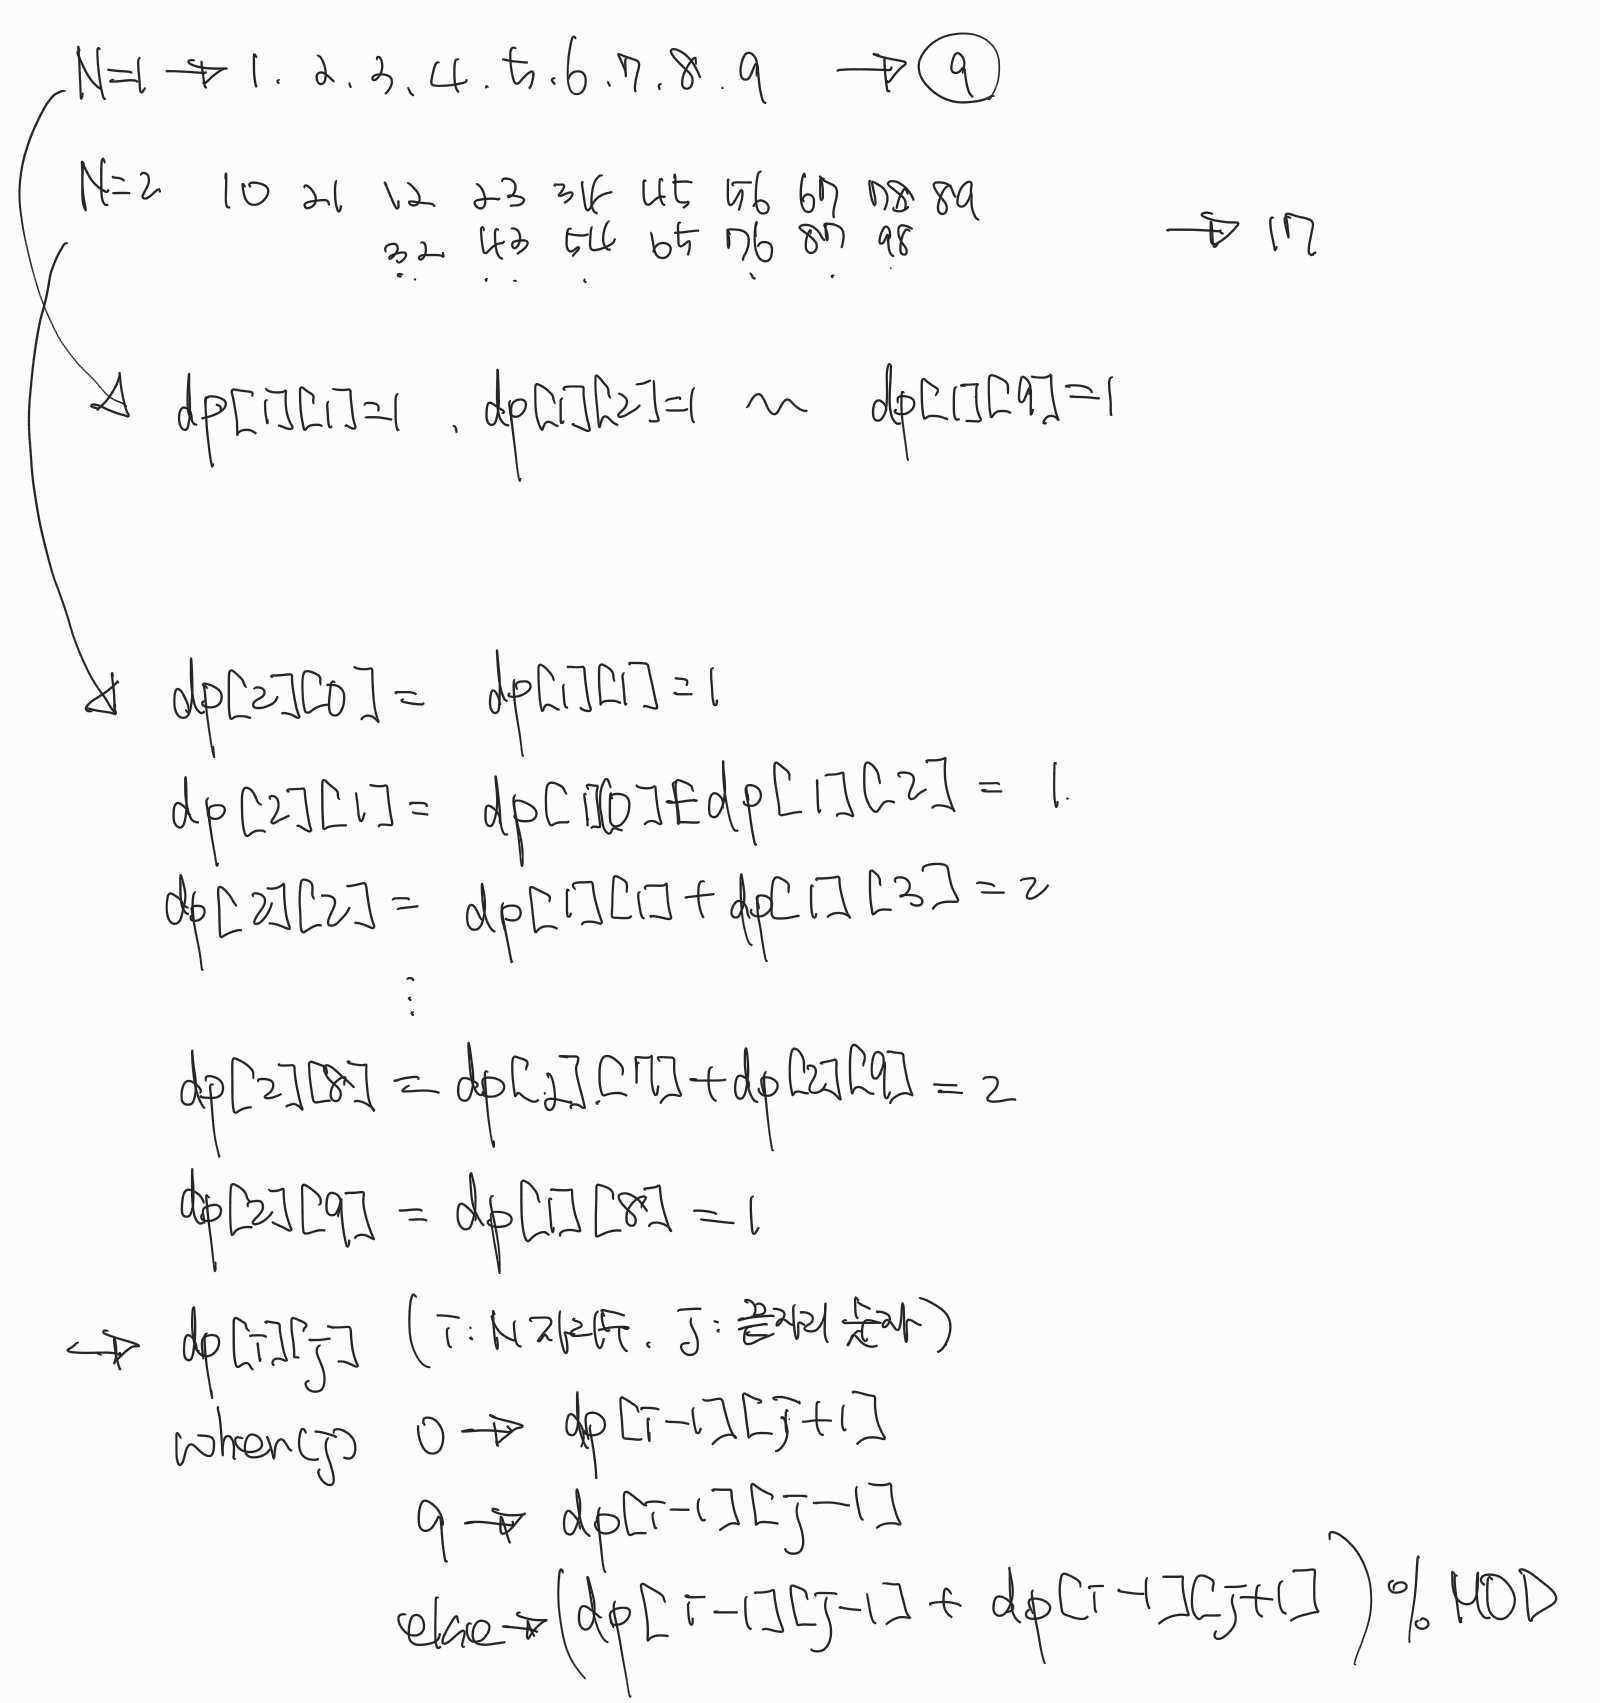 N=1 → 1. 2. 3. 4. 5. 6. 7. 8. 9 → 9
N=2 10 21 12 23 34 45 56 67 78 89
32 43 54 65 76 87 98 → 17
dp[1][1]=1 . dp[1][2]=1 ~ dp[1][9]=1
dp[2][0] = dp[1][1] = 1
dp[2][1] = dp[1][0]+dp[1][2] = 1.
dp[2][2] = dp[1][1]+dp[1][3] = 2
⋮
dp[2][8] = dp[2][7]+dp[2][9] = 2
dp[2][9] = dp[1][8] = 1
→ dp[i][j] (i: N 자릿수. j: 끝자리 숫자)
when(j) 0 → dp[i-1][j+1]
9 → dp[i-1][j-1]
else → (dp[i-1][j-1] + dp[i-1][j+1]) % MOD